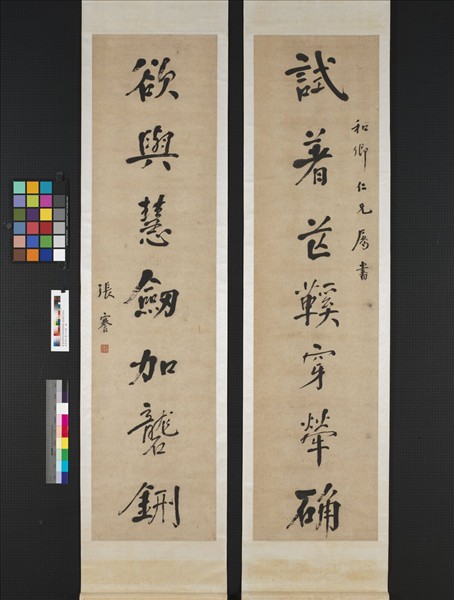 和卿仁兄屬書
試著芒鞵穿犖确
欲與慧劒加礱鉶
張謇